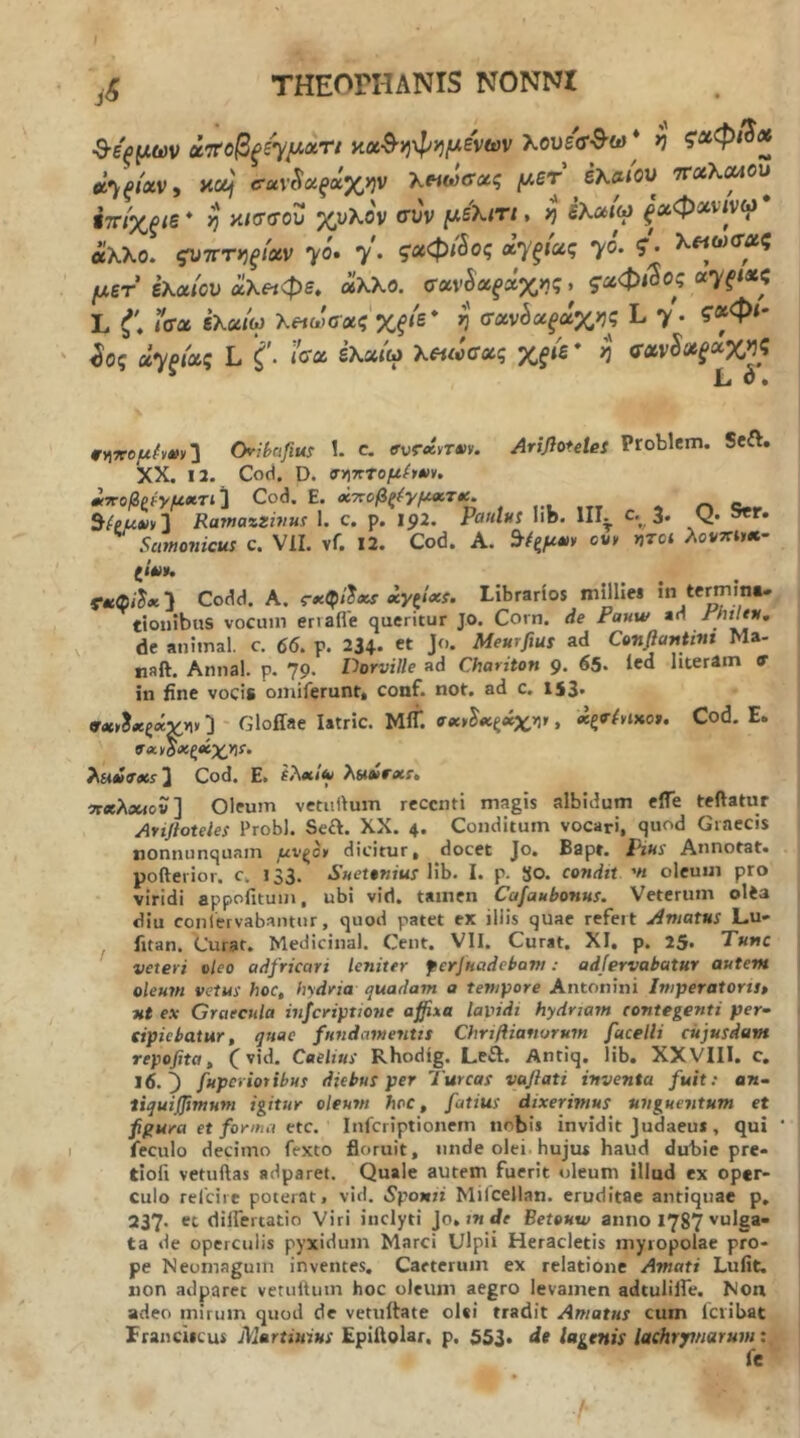 36 THEOPHANIS NONNI
θέρμων ἀποβρέγματι καθηψημένων λουέσθω· ἢ ςαφίδα
ἀγρίαν, καὶ σανδαράχην λειώσας μετ' ἐλαίου παλαιοῦ
ἐπίχριε· ἢ κισσοῦ χυλὸν σὺν μέλιτι, ἢ ἐλαίῳ ῥαφανίνῳ·
ἄλλο. ςυπτηρίαν γό. γ'. ςαφίδος ἀγρίας γό. ς'. λειώσας
μετ' ἐλαίου ἄλειφε. ἄλλο. σανδαράχης, ςαφίδος ἀγρίας
L ζ'. ἴσα ἐλαίω λειώσας χρίε· ἢ σανδαράχης L γ'. ςαφί-
δος ἀγρίας L ζ'. ἴσα ἐλαίῳ λειώσας χρίε· ἢ σανδαράχης
L δ'.
σηπομένων] Oribasius l. c. συςάντων. Aristoteles Problem. Sect.
XX. 12. Cod. D. σηπτομένων.
ἀποβρέγματι] Cod. E. ἀποβρέγματα.
θέρμων] Ramazzinus l. c. p. 192. Paulus lib. III. c. 3. Q. Ser.
Samonicus c. VII. vs. 12. Cod. A. θέρμων οὖν ἤτοι λουπινα-
ρίων.
ςαφίδα] Codd. A. ςαφίδας ἀγρίας. Librarios millies in termina-
tionibus vocum errasse queritur Jo. Corn. de Pauw ad Philen.
de animal. c. 66. p. 234. et Jo. Meursius ad Constantini Ma-
nass. Annal. p. 79. Dorville ad Chariton 9. 65. sed literam σ
in fine vocis omiserunt, conf. not. ad c. 153.
σανδαράχην] Glossae Iatric. MSS. σανδαράχην, ἀρσένικον. Cod. E.
σανδαράχης.
λειώσας] Cod. E. ἐλαίῳ λειώσας.
παλαιοῦ] Oleum vetustum recenti magis albidum esse testatur
Aristoteles Probl. Sect. XX. 4. Conditum vocari, quod Graecis
nonnunquam μυρὸν dicitur, docet Jo. Bapt. Pius Annotat.
posterior. c. 133. Suetonius lib. I. p. 80. condit m oleum pro
viridi appositum, ubi vid. tamen Casaubonus. Veterum olea
diu conservabantur, quod patet ex illis quae refert Amatus Lu-
sitan. Curat. Medicinal. Cent. VII. Curat. XI. p. 25. Tunc
veteri oleo adfricari leniter persuadebam: adservabatur autem
oleum vetus hoc, hydria quadam a tempore Antonini Imperatoris,
ut ex Graecula inscriptione affixa lapidi hydriam contegenti per-
cipiebatur, quae fundamentis Christianorum sacelli cujusdam
reposita, (vid. Caelius Rhodig. Lect. Antiq. lib. XXVIII. c.
16.) superioribus diebus per Turcas vastati inventa fuit: an-
tiquissimum igitur oleum hoc, satius dixerimus unguentum et
figura et forma etc. Inscriptionem nobis invidit Judaeus, qui
seculo decimo sexto floruit, unde olei hujus haud dubie pre-
tiosi vetustas adparet. Quale autem fuerit oleum illud ex oper-
culo rescire poterat, vid. Sponii Miscellan. eruditae antiquae p.
237. et dissertatio Viri inclyti Jo. in de Betouw anno 1787 vulga-
ta de operculis pyxidum Marci Ulpii Heracletis myropolae pro-
pe Neomagum inventes. Caeterum ex relatione Amati Lusit.
non adparet vetustum hoc oleum aegro levamen adtulisse. Non
adeo mirum quod de vetustate olei tradit Amatus cum scribat
Franciscus Martinius Epistolar. p. 553. de lagenis lachrymarum:
se